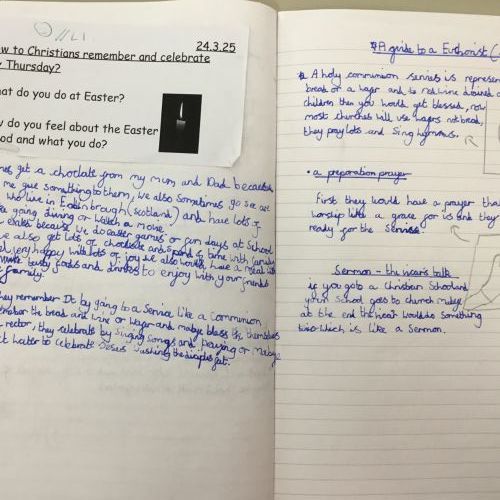 24.3.25
w to Christians remember and celebrate
y Thursday?
at do you do at Easter?
do you feel about the Easter
od and what you do?
get a choclate from my mum and Dad because
me give something to them, we also Sometimes go see
who live in (scotland) and have lots of
going diving or watch a movie.
because we do easter games or fun days at School
we also get lots of choclate and spend time with family
very happy with lots of joy we also would have a meal with
tasty foods and drinks to enjoy with your friends
family.
they remember It by going to a Service like a communion
the bread and wine or wager and maybe bless the themselves
rector, they celebrate by singing songs and praying or maybe
to celebrate Jesus washing the disciples feet.
A guide to a Euthorist (
A holy communion servies is represen
bread or a wager and
children then you would get blessed, now
most churches will use wagers not bread,
they pray lots and Sing hymms.
• a preparation prayer
First they would have a prayer that
worship like a grace for us and they
ready for the Service.
Sermon - the vicar's talk
if you go to a Christian School and
your School goes to church maybe
at the end the vicar would do something
which is like a Sermon.